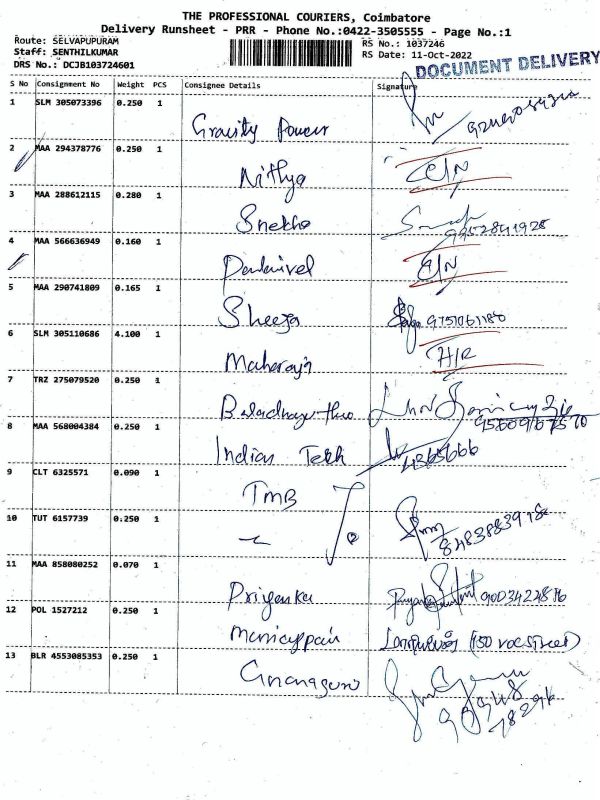 THE PROFESSIONAL COURIERS, Coimbatore
Delivery Runsheet - PRR - Phone No.:0422-3505555 - Page No.:1
Route: SELVAPUPURAM
RS No.: 1037246
Staff: SENTHILKUMAR
RS Date: 11-Oct-2022
DRS No.: DCJB103724601
DOCUMENT DELIVERY
S No Consignment No Weight PCS Consignee Details Signature
1 SLM 305073396 0.250 1
Gravity Power
2 MAA 294378776 0.250 1
Nithya C/N
3 MAA 288612115 0.280 1
Snekha 9952841928
4 MAA 566636949 0.160 1
C/N
5 MAA 290741809 0.165 1
Sheeja 9751061180
6 SLM 305110686 4.100 1
Maharaja H/R
7 TRZ 275079520 0.250 1
8 MAA 568004384 0.250 1
Indian Tekh 4365666
9 CLT 6325571 0.090 1
TMB
10 TUT 6157739 0.250 1
11 MAA 858080252 0.070 1
Priyanka
12 POL 1527212 0.250 1
13 BLR 4553085353 0.250 1
Gnanaguru